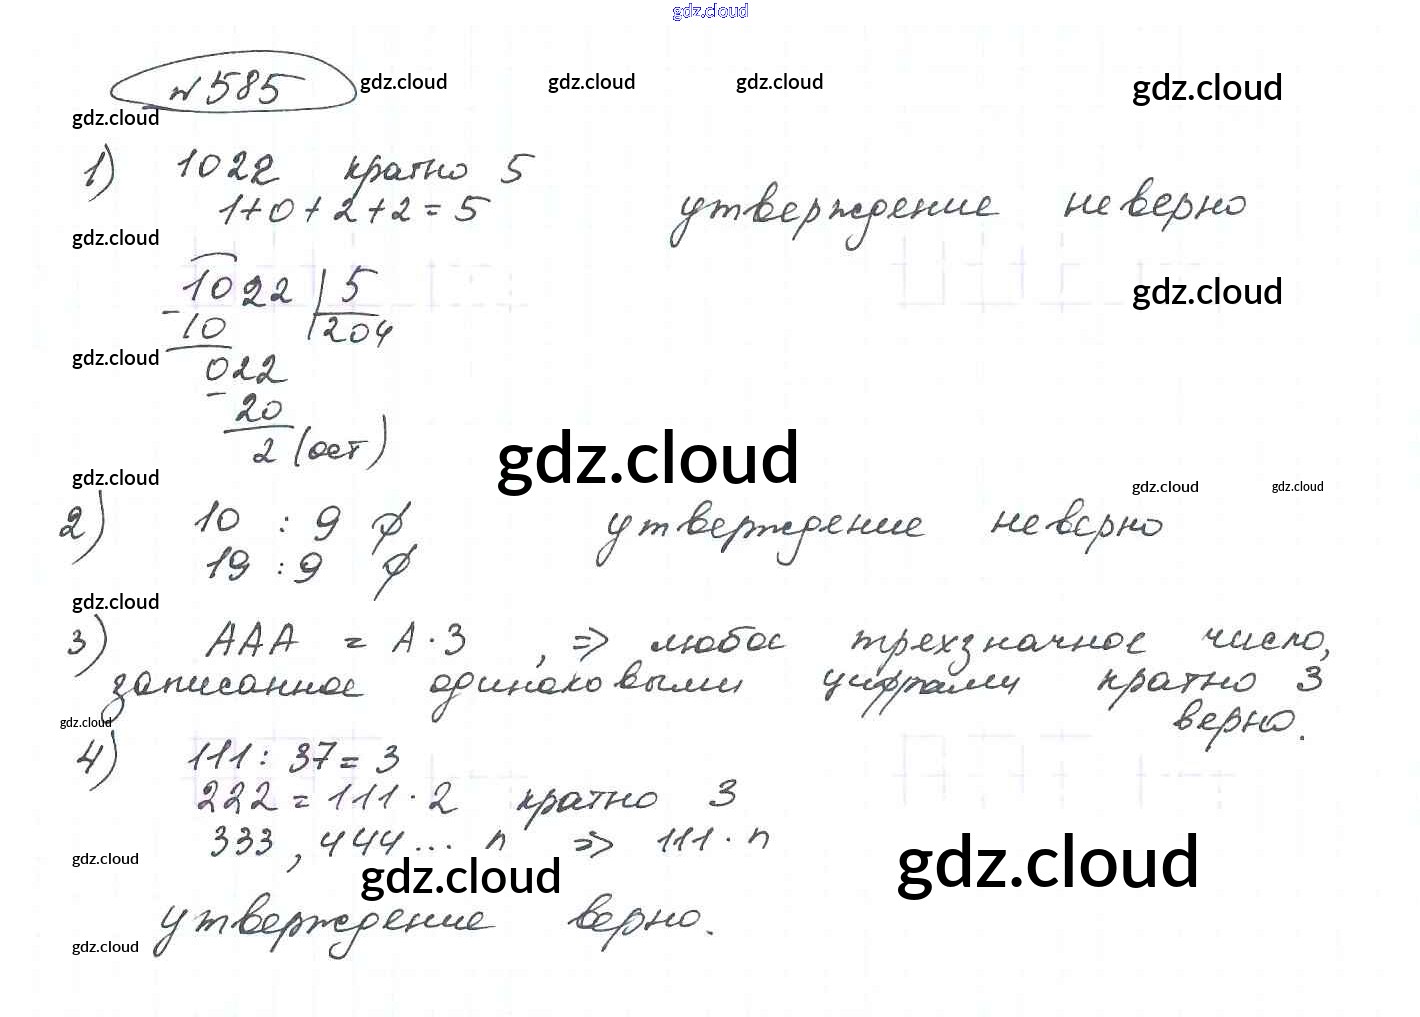 gdz.cloud
№ 585 gdz.cloud gdz.cloud gdz.cloud gdz.cloud
gdz.cloud
1) 1022 кратно 5
1+0+2+2=5 утверждение неверно
gdz.cloud
1022 | 5 gdz.cloud
- 10 204
gdz.cloud
022
- 20
2 (ост)
gdz.cloud
gdz.cloud gdz.cloud gdz.cloud
2) 10 : 9 ∅ утверждение неверно
19 : 9 ∅
gdz.cloud
3) AAA = A · 3 , => любое трехзначное число,
записанное одинаковыми цифрами кратно 3
gdz.cloud верно.
4) 111 : 37 = 3
222 = 111 · 2 кратно 3
333, 444 ... n => 111 · n
gdz.cloud gdz.cloud gdz.cloud
утверждение верно.
gdz.cloud